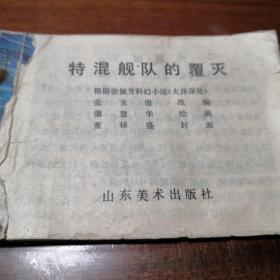 特混舰队的覆灭
根据张佩芳科幻小说《大洋深处》
张玉俊 改编
蒲慧华 绘画
董禄盛 封面
山东美术出版社